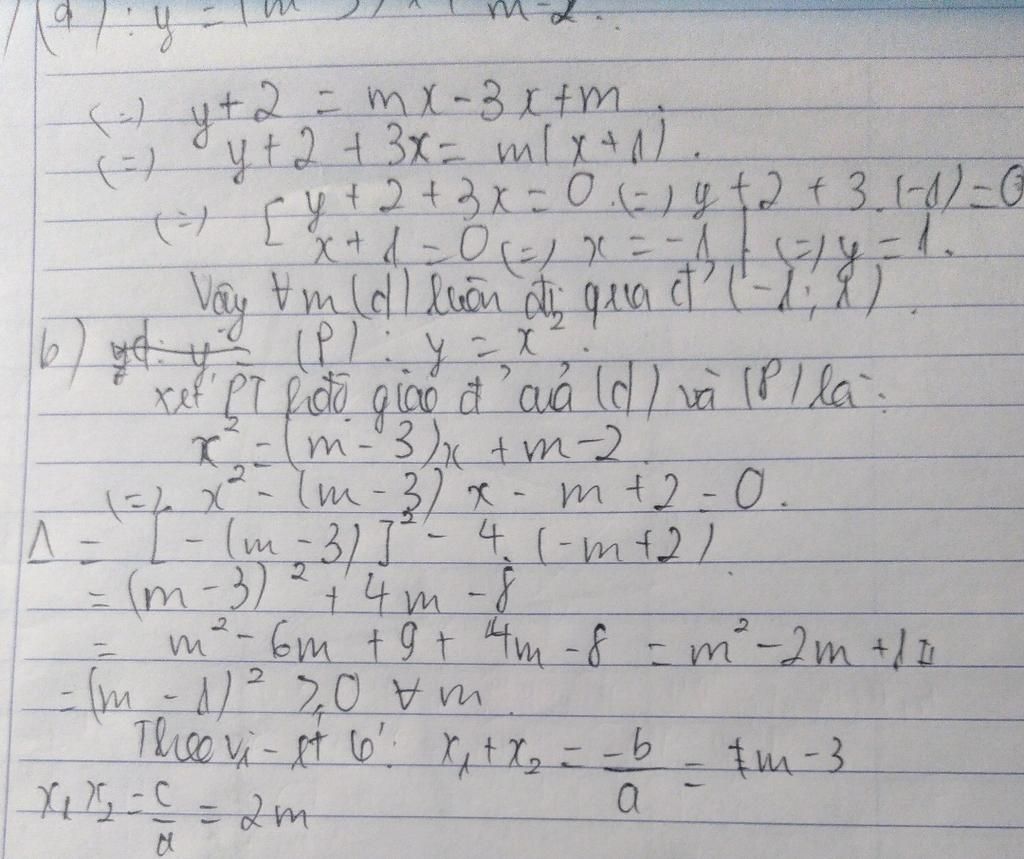 (d) : y = (m - 3) x + m - 2.
(=) y + 2 = mx - 3x + m.
(=) y + 2 + 3x = m(x + 1).
(=) [ y + 2 + 3x = 0 (=) y + 2 + 3.(-1) = 0
x + 1 = 0 (=) x = -1 (=) y = 1.
Vậy ∀m (d) luôn đi qua đ' (-1; 1).
b) yd: y = (P) : y = x².
xét PT h độ giao đ' của (d) và (P) là:
x² = (m - 3)x + m - 2
(=) x² - (m - 3) x - m + 2 = 0.
Δ = [ - (m - 3) ]² - 4. (-m + 2).
= (m - 3)² + 4m - 8
= m² - 6m + 9 + 4m - 8 = m² - 2m + 1
= (m - 1)² ≥ 0 ∀ m.
Theo vi - ét có: x₁ + x₂ = -b/a = m - 3
x₁ x₂ = c/a = 2m